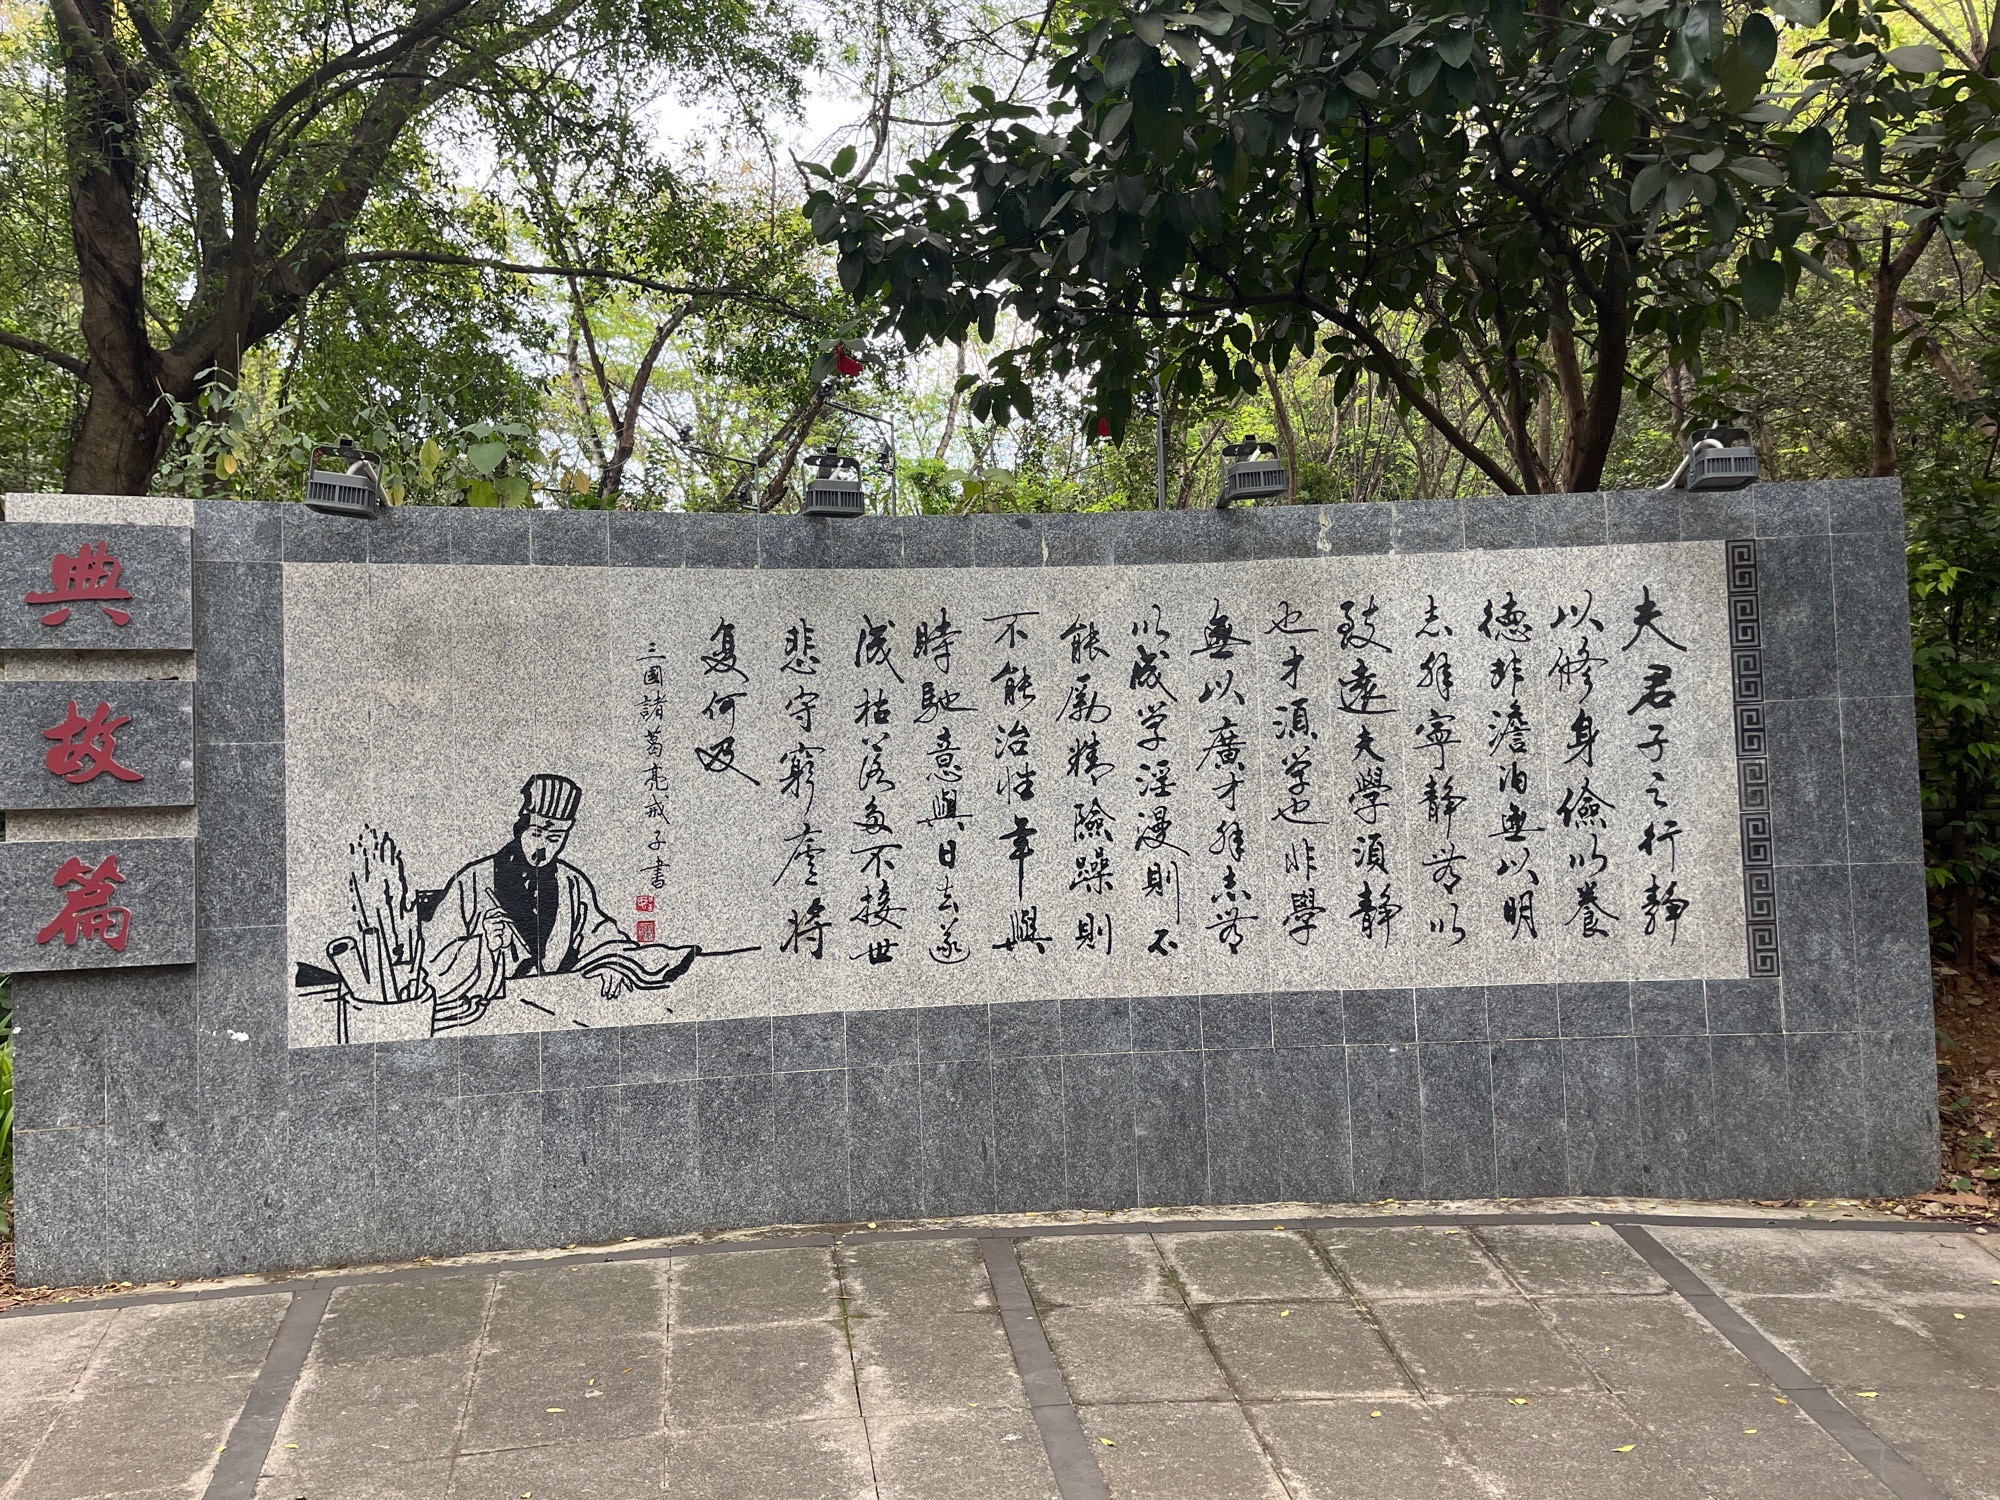 夫君子之行静
以修身儉以養
德非澹泊無以明
志非寧静無以
致遠夫學須静
也才須学也非學
無以廣才非志無
以成学淫漫則不
能勵精險躁則
不能治性年與
時馳意與日去遂
成枯落多不接世
悲守窮廬將
复何及
三國諸葛亮戒子書
典故篇